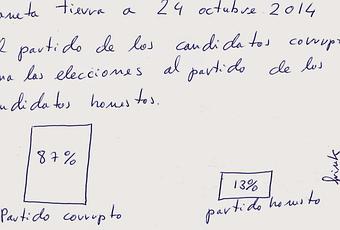 aneta tierra a 24 octubre 2014
l partido de los candidatos corrup
na las elecciones al partido de los
ndidatos honestos.
87%
13%
Partido corrupto
partido honesto